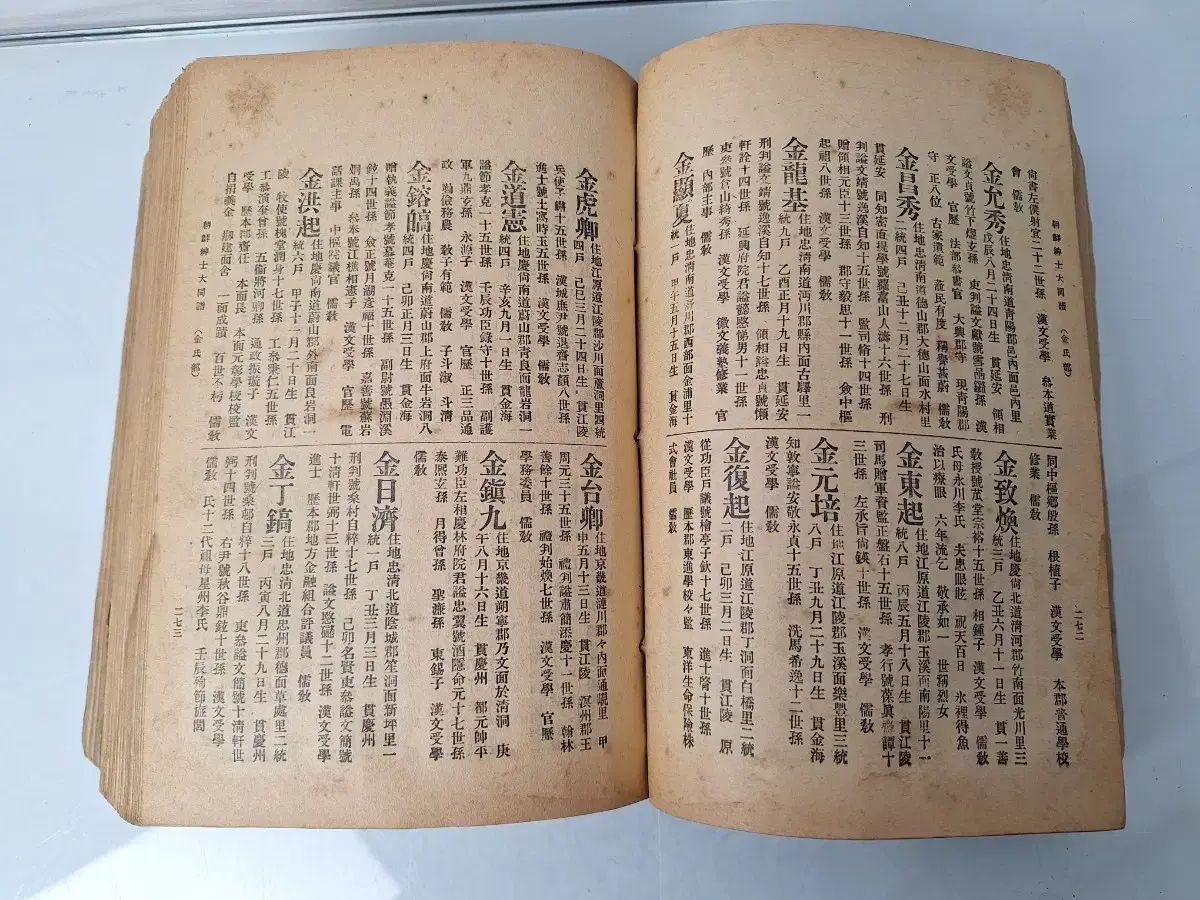 朝鮮紳士大同譜 (金氏部)
二七二
尙書左僕射宜二十二世孫 漢文受學 叅本道實業
會 儒敎
金允秀 住地忠淸南道靑陽郡邑內面邑內里
戊辰八月二十四日生 貫延安 領相
文受學 官歷 法部叅書官 大興郡守 現靑陽郡
守 正八位 古家遺範 莅民有度 稱譽甚蔚 儒敎
金昌秀 住地忠淸南道德山郡大德山面水村里
二統四戶 己丑十二月二十七日生
贈領相元臣十三世孫 郡守毅思十一世孫 僉中樞
起祖八世孫 漢文受學 儒敎
金龍基 住地忠淸南道沔川郡縣內面古縣里一
統九戶 乙酉正月十九日生 貫延安
刑判諡文靖號逸溪自知十七世孫 領相諡忠貞號懶
軒詮十四世孫 延興府院君諡懿愍悌男十一世孫
東叅號倉山綺秀孫 漢文受學 徽文義塾修業 官
歷 內部主事 儒敎
金顯夏 住地忠淸南道沔川郡西部面金浦里十
統一戶 甲午五月十五日生 貫金海
同中樞鄕殷孫 根植子 漢文受學 本郡普通學校
修業 儒敎
金致煥 住地慶尙北道淸河郡竹南面光川里三
統三戶 乙丑六月十一日生 貫一善
敎授號茛堂宗裕十五世孫 相鍾子 漢文受學 儒敎
氏母永川李氏 夫患眼眩 祝天百日 氷裡得魚
治以療眼 六年流乞 敬承如一 世稱烈女
金東起 住地江原道江陵郡玉溪面南陽里十一
統八戶 丙辰五月十八日生 貫江陵
司馬贈軍資監正盤石十五世孫 孝行號葆眞齋譚十
三世孫 左承旨尙鍈十世孫 漢文受學 儒敎
金元培 住地江原道江陵郡玉溪面樂豐里三統
八戶 丁丑九月二十九日生 貫金海
知敦寧諡安敬永貞十五世孫 洗馬希逸十二世孫
漢文受學 儒敎
金復起 住地江原道江陵郡丁洞面白橋里二統
二戶 己卯三月二日生 貫江陵 原
從功臣戶議號檜亭子欽十七世孫 進士脊十世孫
漢文受學 歷本郡東進學校々監 東洋生命保險株
式會社員 儒敎
金虎卿 住地江原道江陵郡沙川面蘆洞里四統
四戶 己巳三月二十四日生 貫江陵
進士號土窩時玉五世孫 漢文受學 儒敎
金道憲 住地慶尙南道蔚山郡靑良面龍岩洞一
統四戶 辛亥九月一日生 貫金海
諡節孝克一十五世孫 壬辰功臣錄守十世孫 副護
軍九鼎玄孫 永源子 漢文受學 官歷 正三品通
政 勤儉務農 敎子有範 儒敎 子斗淑 斗淸
金鎔鎬 住地慶尙南道蔚山郡上府面牛岩洞八
統四戶 己卯正月三日生 貫金海
贈執義諡節孝號慕菴克一十五世孫 副尉號愚淵溪
銊十四世孫 僉正號月湖彥福十世孫 嘉善號蘇岩
炯禹孫 叅奉號江樵相憲子 漢文受學 官歷 電
話課主事 中樞院議官 儒敎
金洪起 住地慶尙南道蔚山郡外南面良岩洞一
統六戶 甲子十一月二十日生 貫江
陵 牧使號槐堂潤身十七世孫 工叅秉仁五世孫
工叅演奎曾孫 五衛將河卿孫 通政振璇子 漢文
受學 歷本郡齋任 本面長 本面元彰學校校監
自捐義金 刱建面舍 一面成蹟 百世不朽 儒敎
朝鮮紳士大同譜 (金氏部)
二七三
金台卿 住地京畿道漣川郡々內面通峴里 甲
申五月十三日生 貫江陵 溟州郡王
周元三十五世孫 禮判諡肅簡添慶十一世孫 翰林
善餘十世孫 禮判始煥七世孫 漢文受學 官歷
學務委員 儒敎
金鎭九 住地京畿道朔寧郡乃文面於淸洞 庚
午八月十六日生 貫慶州 都元帥平
難功臣左相慶林府院君諡忠翼號酒隱命元十七世孫
泰熙玄孫 月得曾孫 聖濂孫 東錫子 漢文受學
儒敎
金日濟 住地忠淸北道陰城郡笙洞面新坪里一
統一戶 丁丑三月三日生 貫慶州
刑判號桑村自粹十七世孫 己卯名賢東叅諡文簡號
十淸軒世弼十三世孫 諡文愍礎十二世孫 漢文受學
進士 歷本郡地方金融組合評議員 儒敎
金丁鎬 住地忠淸北道忠州郡德面草處里二統
三戶 丙寅八月二十九日生 貫慶州
刑判號桑邨自粹十八世孫 東叅諡文簡號十淸軒世
弼十四世孫 右尹號秋谷鼎鉉十世孫 漢文受學
儒敎 氏十二代祖母星州李氏 壬辰殉節旌閭